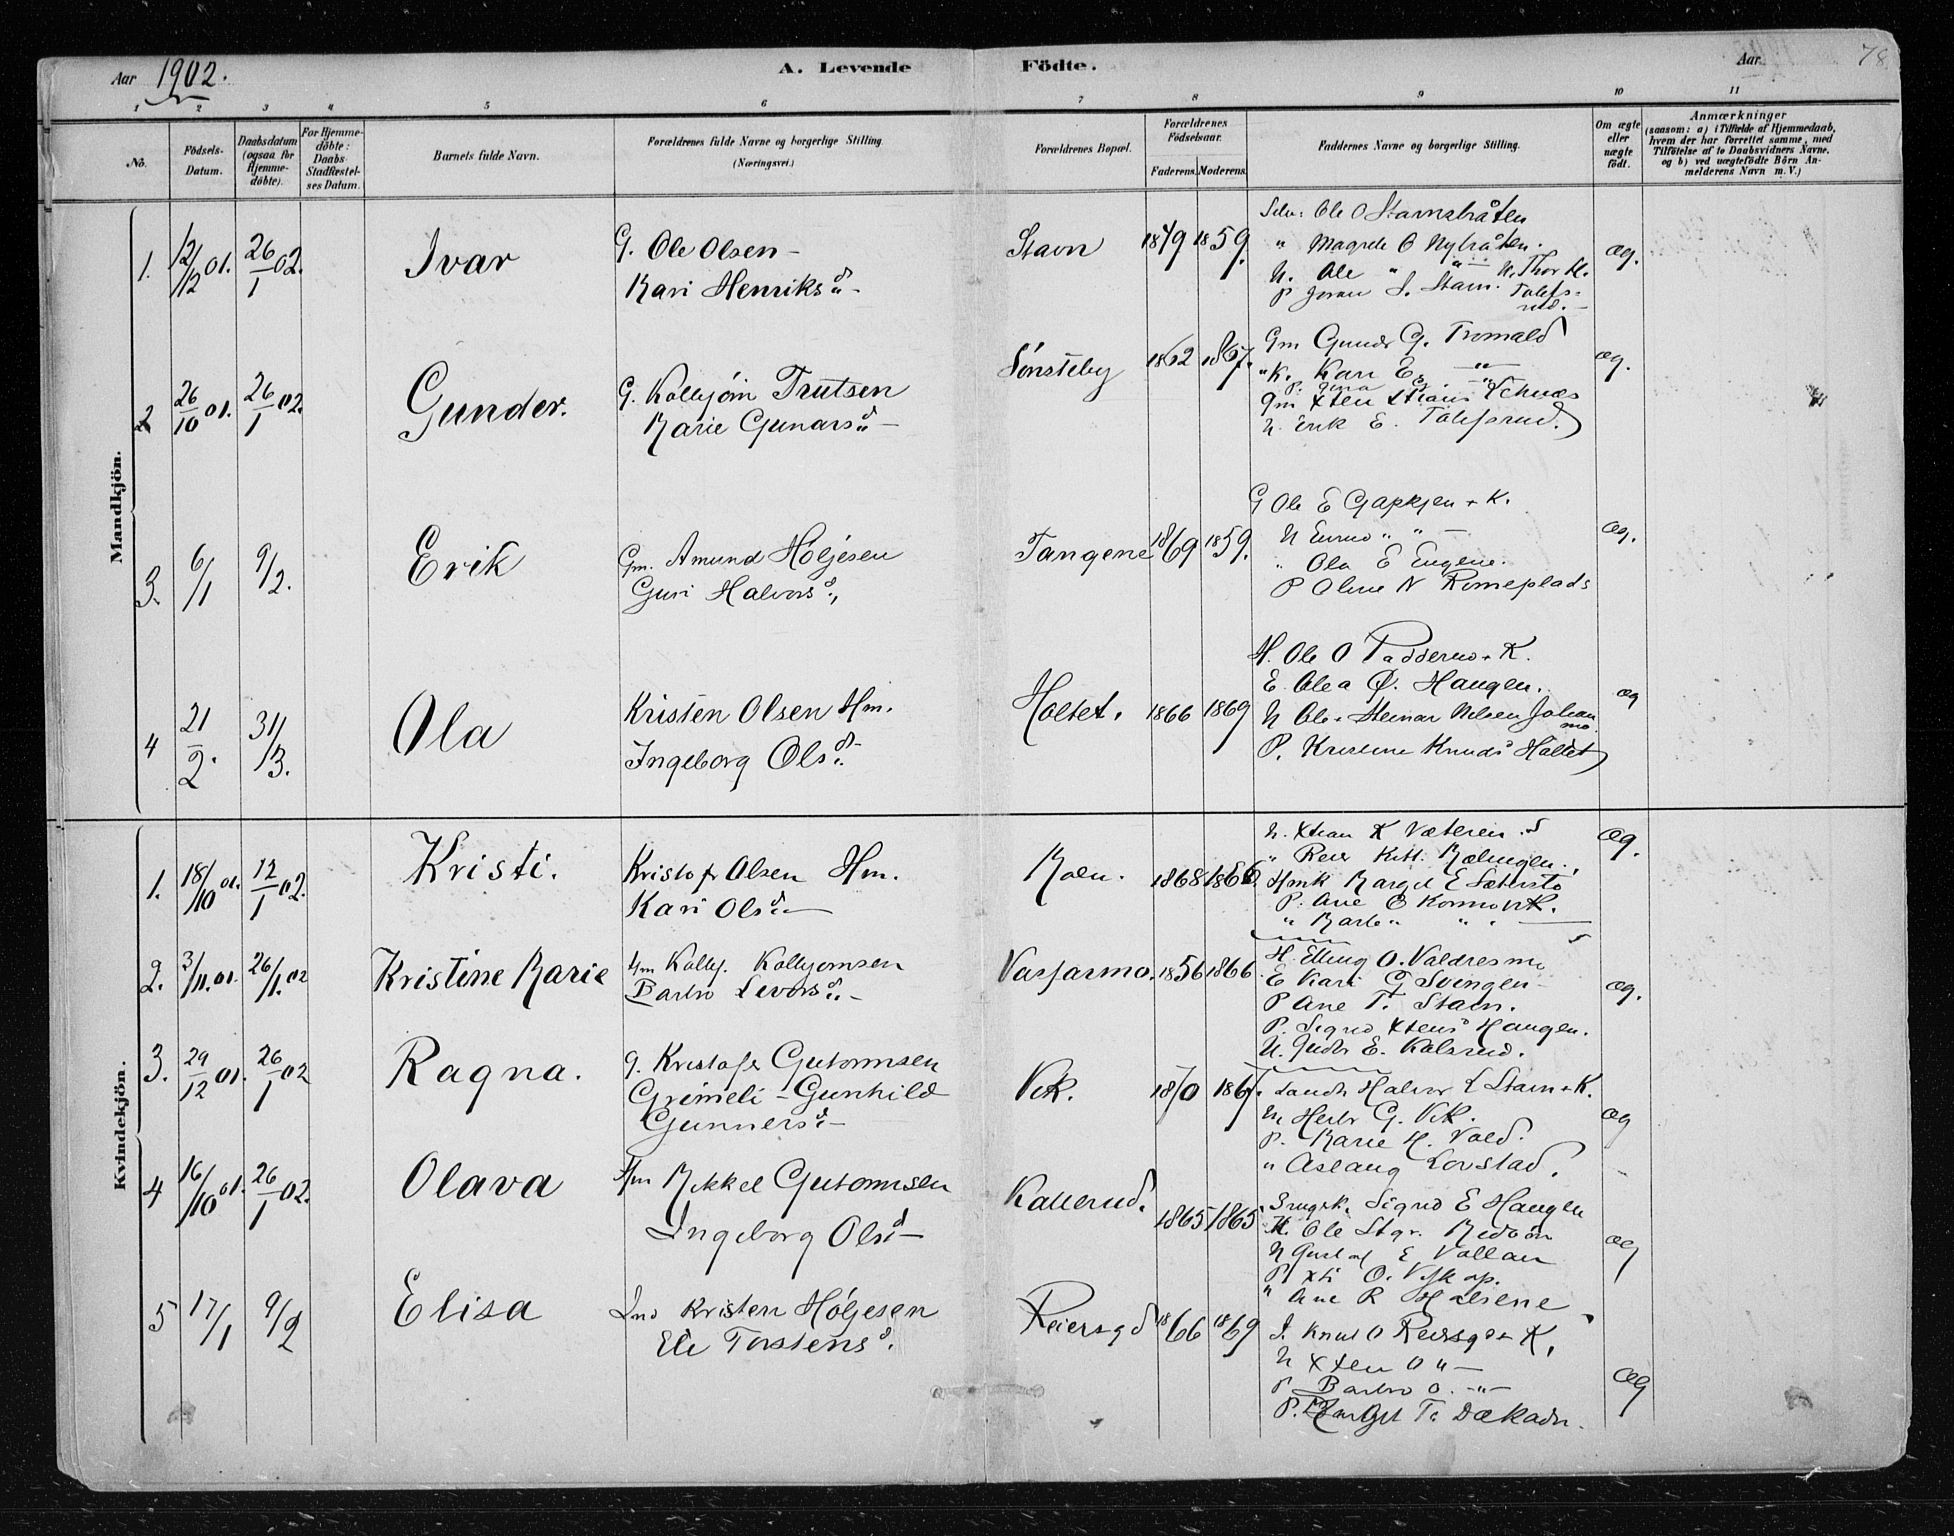 Aar 1902. A. Levende Födte. Aar 78
1 2 3 4 5 6 7 8 9 10 11
No. Födsels-Datum. Daabsdatum (ogsaa for Hjemmedöbte). For Hjemmedöbte: Daabs Stadfæstelses Datum. Barnets fulde Navn. Forældrenes fulde Navne og borgerlige Stilling (Næringsvei.) Forældrenes Bopæl. Forældrenes Födselsaar. Faderens. Moderens. Faddernes Navne og borgerlige Stilling. Om ægte eller uægte födt. Anmærkninger (saasom: a) i Tilfælde af Hjemmedaab, hvem der har forrettet samme, med Tilföielse af to Daabsvidners Navne. og b) ved uægtefödte Börn Anmelderens Navn m. V.)
Mandkjön.
1. 12/12 01. 26/1 02. Ivar
G. Ole Olsen -
Kari Henriksd. -
Stavn 1849 1859.
Ole O Stavnsbråten
" Magrete O Nybråten.
U. Ole " " U. Thor H.
P J. Stavn. Tolefsrud. -
æg.
2 26/10 01. 26/1 02. Gunder.
G. Kolbjørn Trutsen
Marie Gunarsd. -
Sønsteby 1862 1867.
Gm Gunder G. Tromald
"K. Kari E. "
Gm Xten
U. Erik E. Tolefsrud.
æg.
3. 6/1 9/2. Erik
Gm. Amund Holjesen
Guri Halvorsd.
Tangene 1869 1859.
G Ole E Gapkjen + K.
U " " -
" Ola E Eugene.
P Oline N Romeplads
æg.
4 21/2. 31/3. Ola
Kristen Olsen Hm.
Ingeborg Olsd.
Holtet. 1866 1869
H. Ole O Padderud + K.
E. Olea Ø. Haugen.
U Ole + Steinar Nelsen Johanmo.
P. Kristine Knudsd Holtet
æg
Kvindekjön.
1. 18/10 01. 12/1 02. Kristi.
Kristofr Olsen Hm.
Kari Olsd. -
Moen. 1868 1866.
U. Xtian K Væteren.
" Reier Kitt.
Hmk Marget E Sæterstø
P. Ane O
" "
æg.
2. 3/11. 01. 26/1. 02 Kristine Marie
Hm Kolbj. Kolbjørnsen
Barbro Levorsd. -
1856 1866.
H. Elling O. Valdresmo
E Kari G Svingen -
P Ane T. Stavn.
P. Sigrid Xtensd Haugen.
U. Gudbr E. Kolsrud.
æg.
3. 29/12 01. 26/1 02 Ragna.
G. Kristofer Gutormsen
Grimeli - Gunhild
Gunnersd. -
Vik. 1870 1867.
Landh Halvor L Stavn + K.
U Herbr G. Vik.
P. Marie H. Vold.
" Aslaug Lovstad.
æg
4 16/10 01. 26/1 02. Olava
Hm Mikkel Gutormsen
Ingeborg Olsd. -
Kallerud. 1865 1865.
Sigrid E Haugen
H. Ole Stgr. Medøen
U Gustaf E Vollan
P Xti O.
" Ane R
æg
5 17/1 9/2 Elisa
Ind Kristen Holjesen
Eli Torstensd.
Reiersgd 1866 1869
I. Knut O Reiersgd + K.
U Xten O " -
P Barbro O. - " -
P. Marget T. Dækadn.
æg